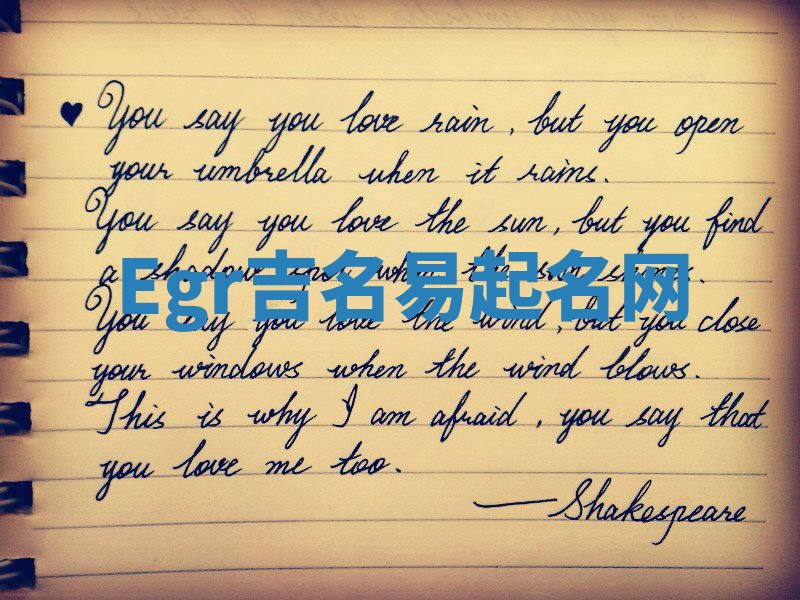 ♥ You say you love rain, but you open
your umbrella when it rains.
You say you love the sun, but you find
a shadow spot when the sun shines.
Egr吉名易起名网
You say you love the wind, but you close
your windows when the wind blows.
This is why I am afraid, you say that
you love me too.
—Shakespeare